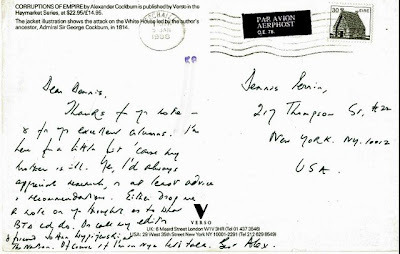 CORRUPTIONS OF EMPIRE by Alexander Cockburn is published by Verso in the
Haymarket Series, at $22.95/£14.95.
The jacket illustration shows the attack on the White House led by the author's
ancestor, Admiral Sir George Cockburn, in 1814.
JAN
1988
PAR AVION
AERPHOST
O.E. 78.
30 éIRE
Dear Dennis,
Thanks for yr note –
& for yr excellent columns. I'm
here for a little bit 'cause my
brother is ill. Yes, I'd always
appreciate research, or at least advice
& recommendation. Either drop me
a note on yr thoughts as to what
to do. Or call my
& friend JoAnn Wypijewski at
The Nation. Of course if I'm in NYC let's talk. Alex.
Dennis Perrin,
217 Thompson St, #22
NEW YORK. NY. 10012
USA.
VERSO
UK: 6 Meard Street London W1V 3HR (Tel 01 437 3546)
USA: 29 West 35th Street New York NY 10001-2291 (Tel 212 629 8549)